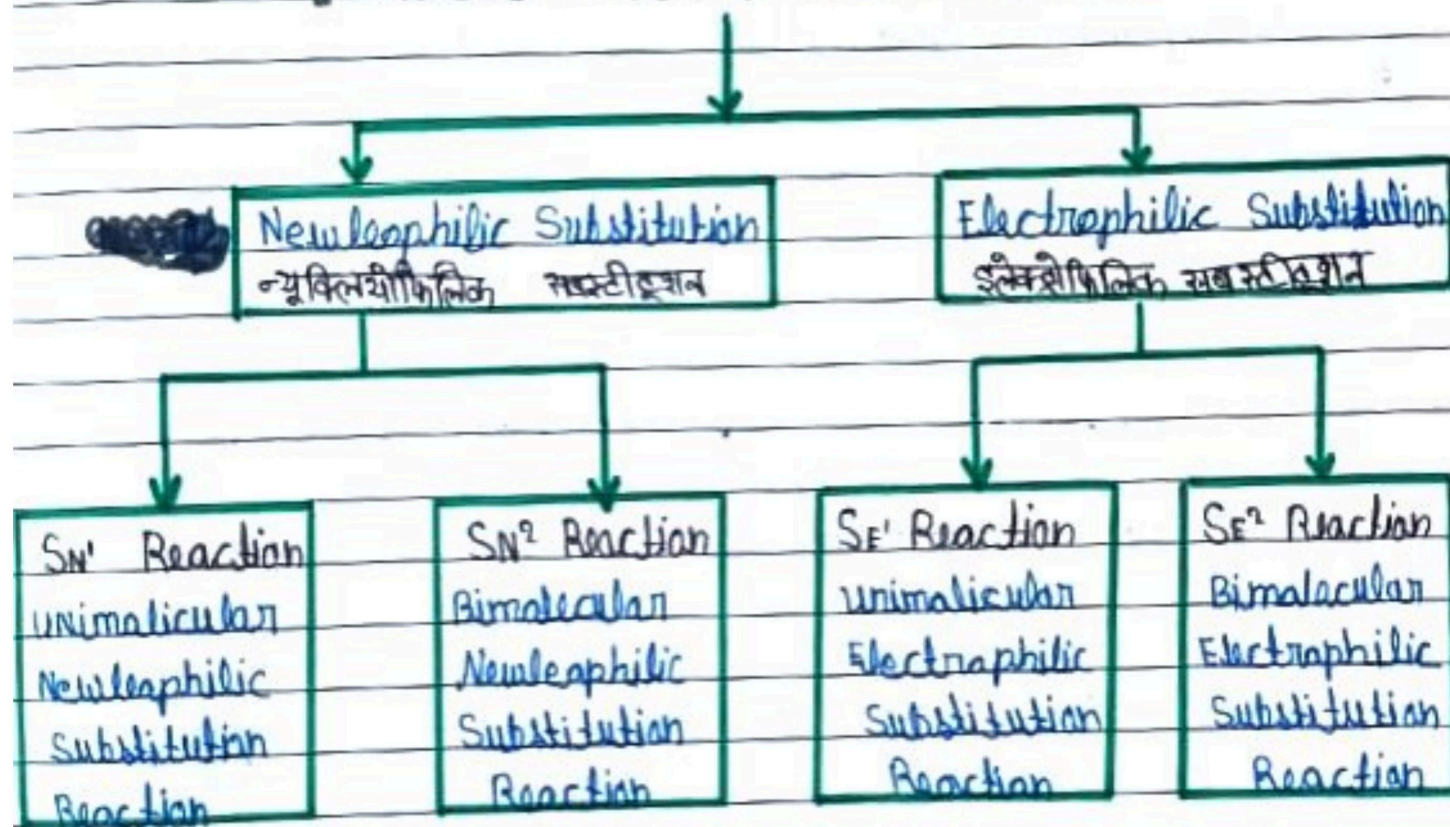 Newleophilic Substitution
न्यूक्लियोफिलिक सबस्टीटूशन
Electrophilic Substitution
इलेक्ट्रोफिलिक सबस्टीटूशन
SN1 Reaction
Unimalicular
Newleophilic
Substitution
Reaction
SN2 Reaction
Bimalecular
Newleophilic
Substitution
Reaction
SE1 Reaction
Unimalicular
Electraphilic
Substitution
Reaction
SE2 Reaction
Bimalacular
Electraphilic
Substitution
Reaction